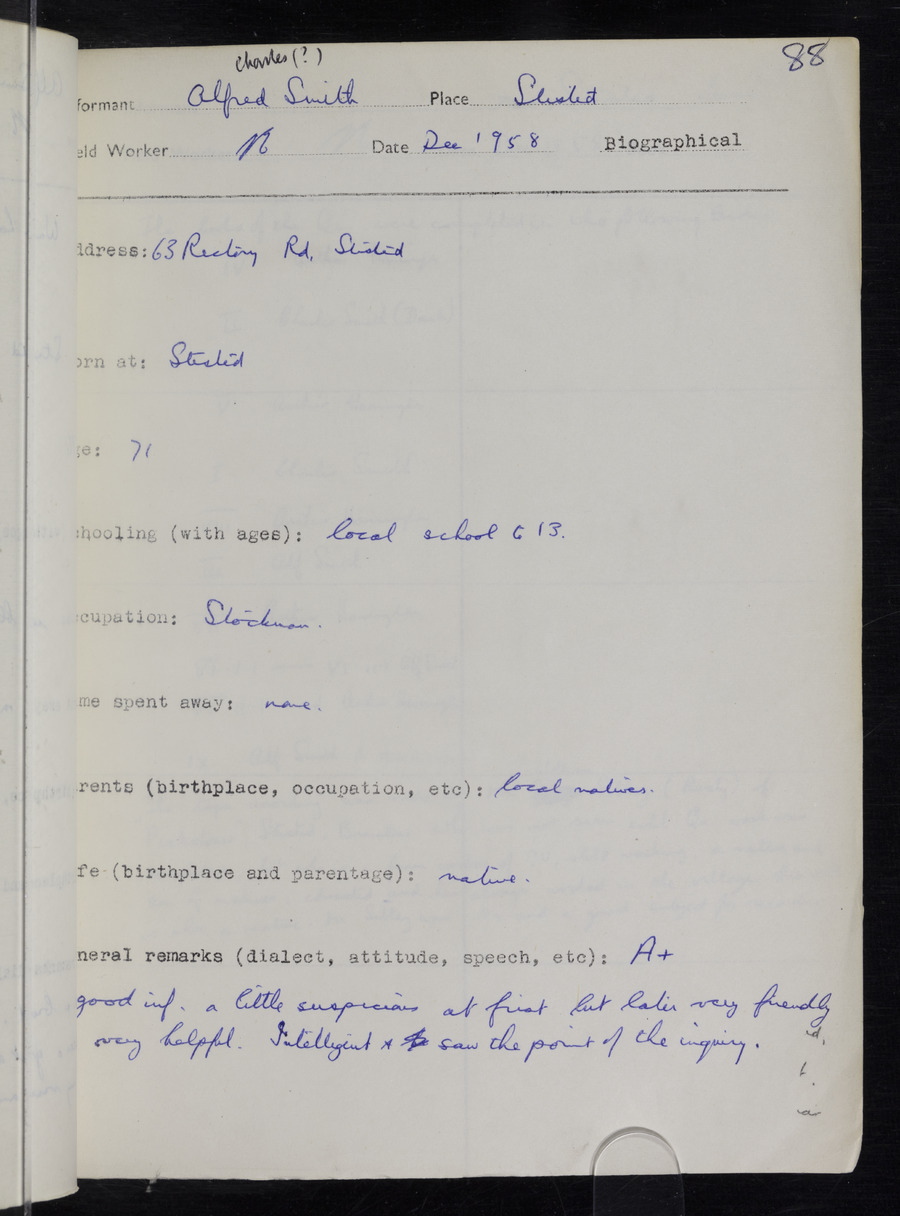 Charles (?)
88
formant Alfred Smith Place Stisted
eld Worker Date Dec 1958 Biographical
ddress: 63 Rectory Rd, Stisted
orn at: Stisted
ge: 71
chooling (with ages): local school to 13.
ccupation: Stockman.
me spent away: none.
rents (birthplace, occupation, etc): local natives.
fe (birthplace and parentage): native.
neral remarks (dialect, attitude, speech, etc): A+
good inf. a little suspicious at first but later very friendly
very helpful. Intelligent & saw the point of the inquiry.